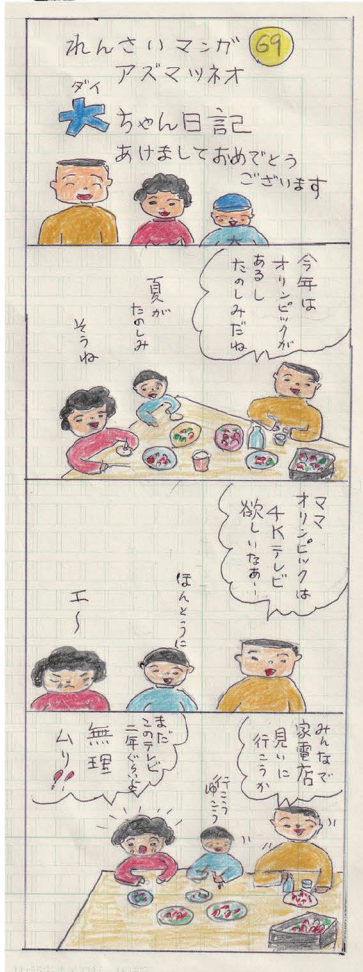 れんさいマンガ 69
アズマツネオ
ダイ
大ちゃん日記
あけましておめでとう
ございます
今年は
オリンピックが
あるし
たのしみだね
夏が
たのしみ
そうね
ママ
オリンピックは
4Kテレビ
欲しいなあー
ほんとうに
エ〜
みんなで
家電店
見いに
行こうか
行こう
行こう
まだ
このテレビ
二年ぐらいよ
無理
ムリ!!